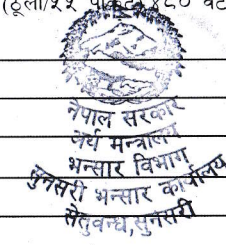 (ठूला/२२
नेपाल सरकार
अर्थ मन्त्रालय
भन्सार विभाग
सुनसरी भन्सार कार्यालय
सेतुवन्ध, सुनसरी